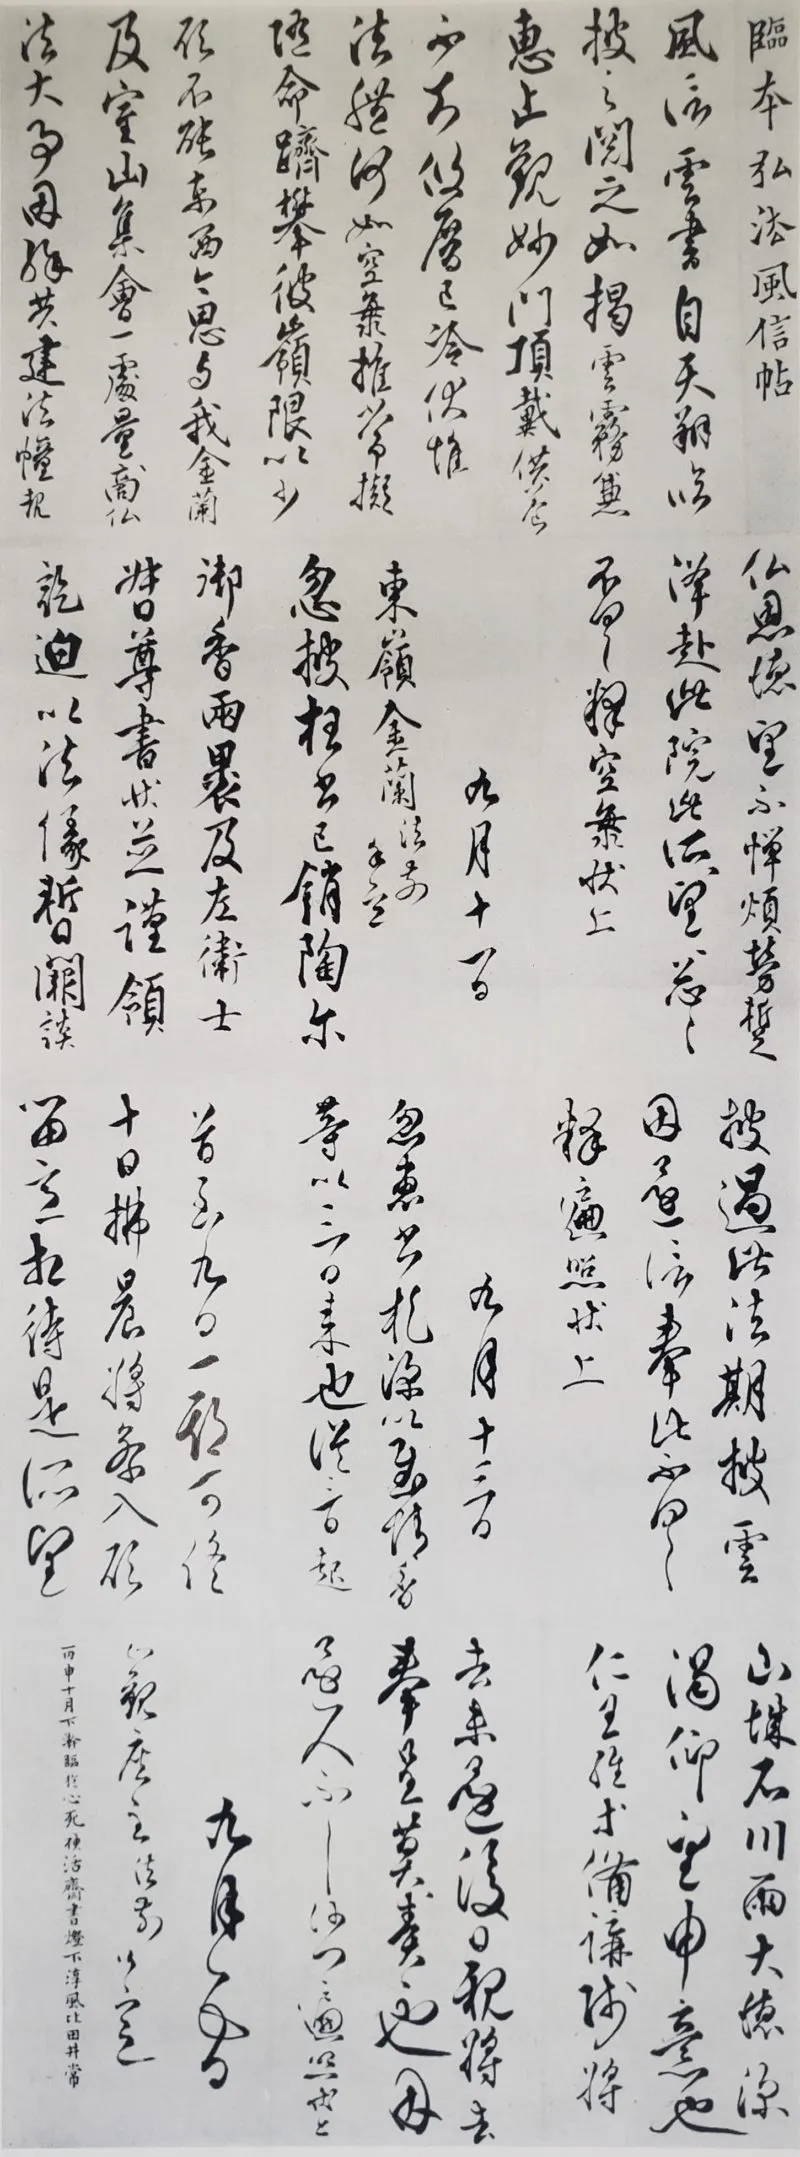 臨本弘法風信帖
風信雲書自天翔臨
披之閱之如揭雲霧兼
惠止觀妙門頂戴供養
不知攸厝已冷伏惟
法體何如空海推常擬
隨命躋攀彼嶺限以少
願不能東西今思与我金蘭
及室山集會一處量商仏
法大事因緣共建法幢報
仏恩德望不憚煩勞蹔
降赴此院此所望々々
不具釋空海狀上
九月十一日
東嶺金蘭法前
忽披枉書已銷陶尔
御香兩裹及左衛士
督尊書狀並謹領
訖迫以法緣暫闕談
披過此法期披雲
因還信奉此不具
釋遍照狀上
九月十三日
忽惠書札深以慰情香
等以三日來也從三日起
首至九日一期可終
十日拂晨將參入願
留意相待是所望
山城石川兩大德深
渴仰望申意也
仁王經等備講師將
去未還後日親將去
奉呈莫責也因
還人不具沙門遍照狀上
九月五日
止觀座主法前
丙申十月下澣臨於心死